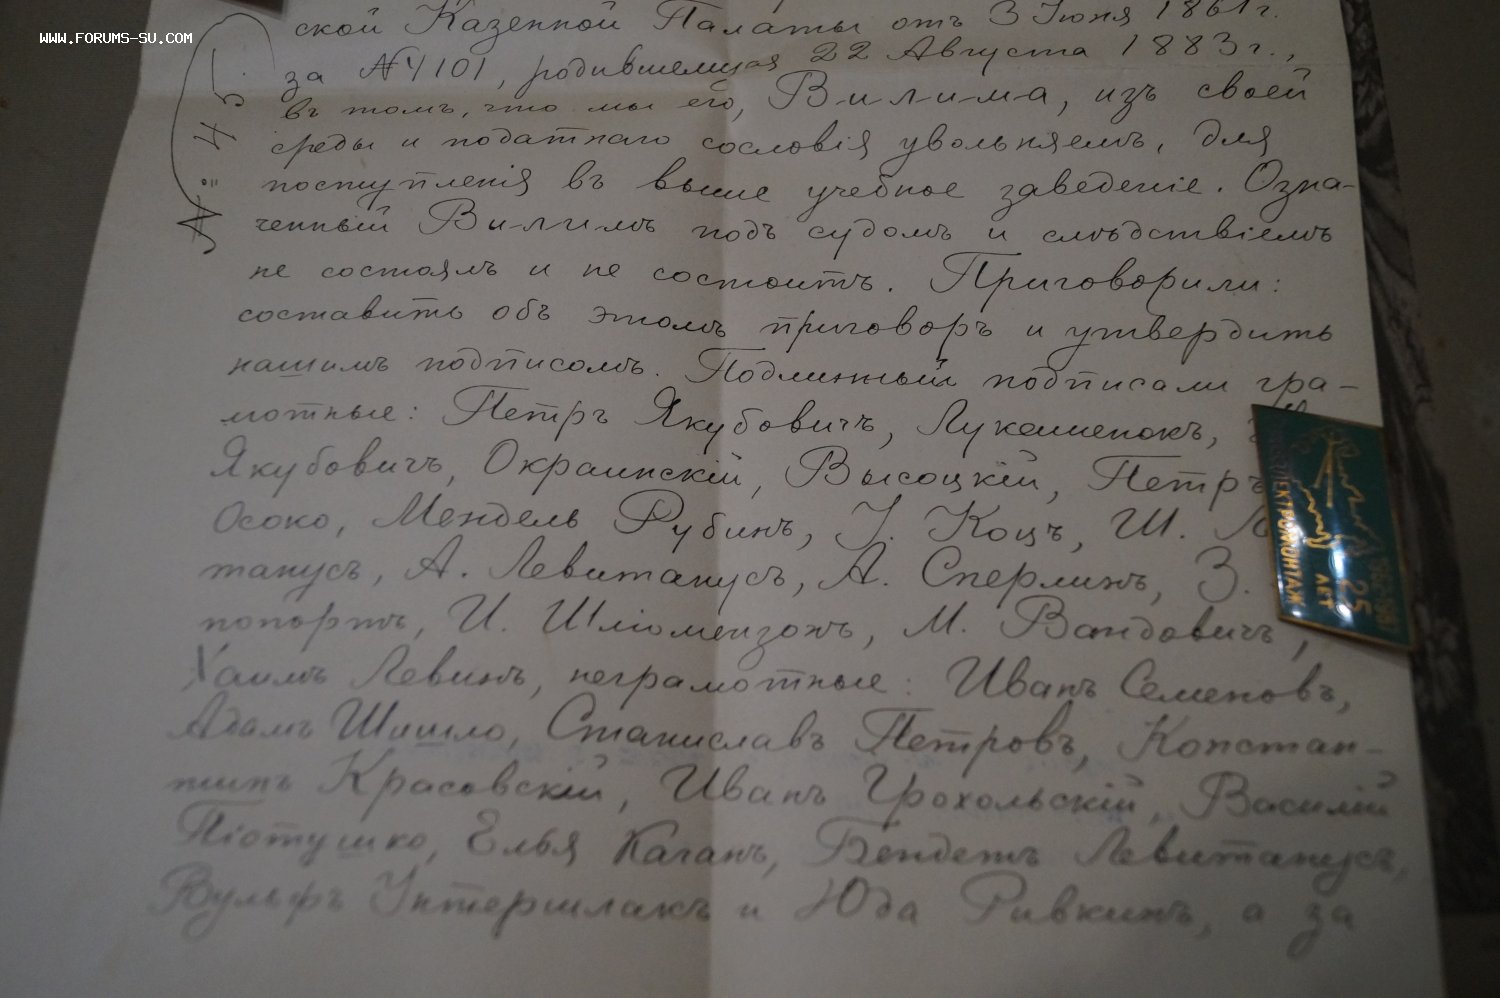 WWW.FORUMS-SU.COM
ской Казенной Палаты отъ 3 Іюня 1861 г.
за № 4101, родившемуся 22 Августа 1883 г.,
въ томъ, что мы его, В-и-л-и-м-а, изъ своей
среды и податнаго сословія увольняемъ, для
поступленія въ выше учебное заведеніе. Озна-
ченный В-и-л-и-мъ подъ судомъ и слѣдствіемъ
не состоялъ и не состоитъ. Приговорили:
составить объ этомъ приговоръ и утвердить
нашимъ подписомъ. Подлинный подписали гра-
мотные: Петръ Якубовичъ, Лукашенокъ,
Якубовичъ, Окраинскій, Высоцкій, Петръ
Осоко, Мендель Рубинъ, І. Кацъ, Ш.
танусъ, А. Левитанусъ, А. Сперлинъ, З.
попортъ, И. Шліомензонъ, М. Вандовичъ,
Хаимъ Левинъ, неграмотные: Иванъ Семеновъ,
Адамъ Шишло, Станиславъ Петровъ, Констан-
тинъ Красовскій, Иванъ Грохольскій, Василій
Піотушко, Елья Каганъ, Бендетъ Левитанусъ,
Вульфъ Интершлакъ и Юда Ривкинъ, а за
№ 45.
ЭЛЕКТРОМОНТАЖ
25
ЛЕТ